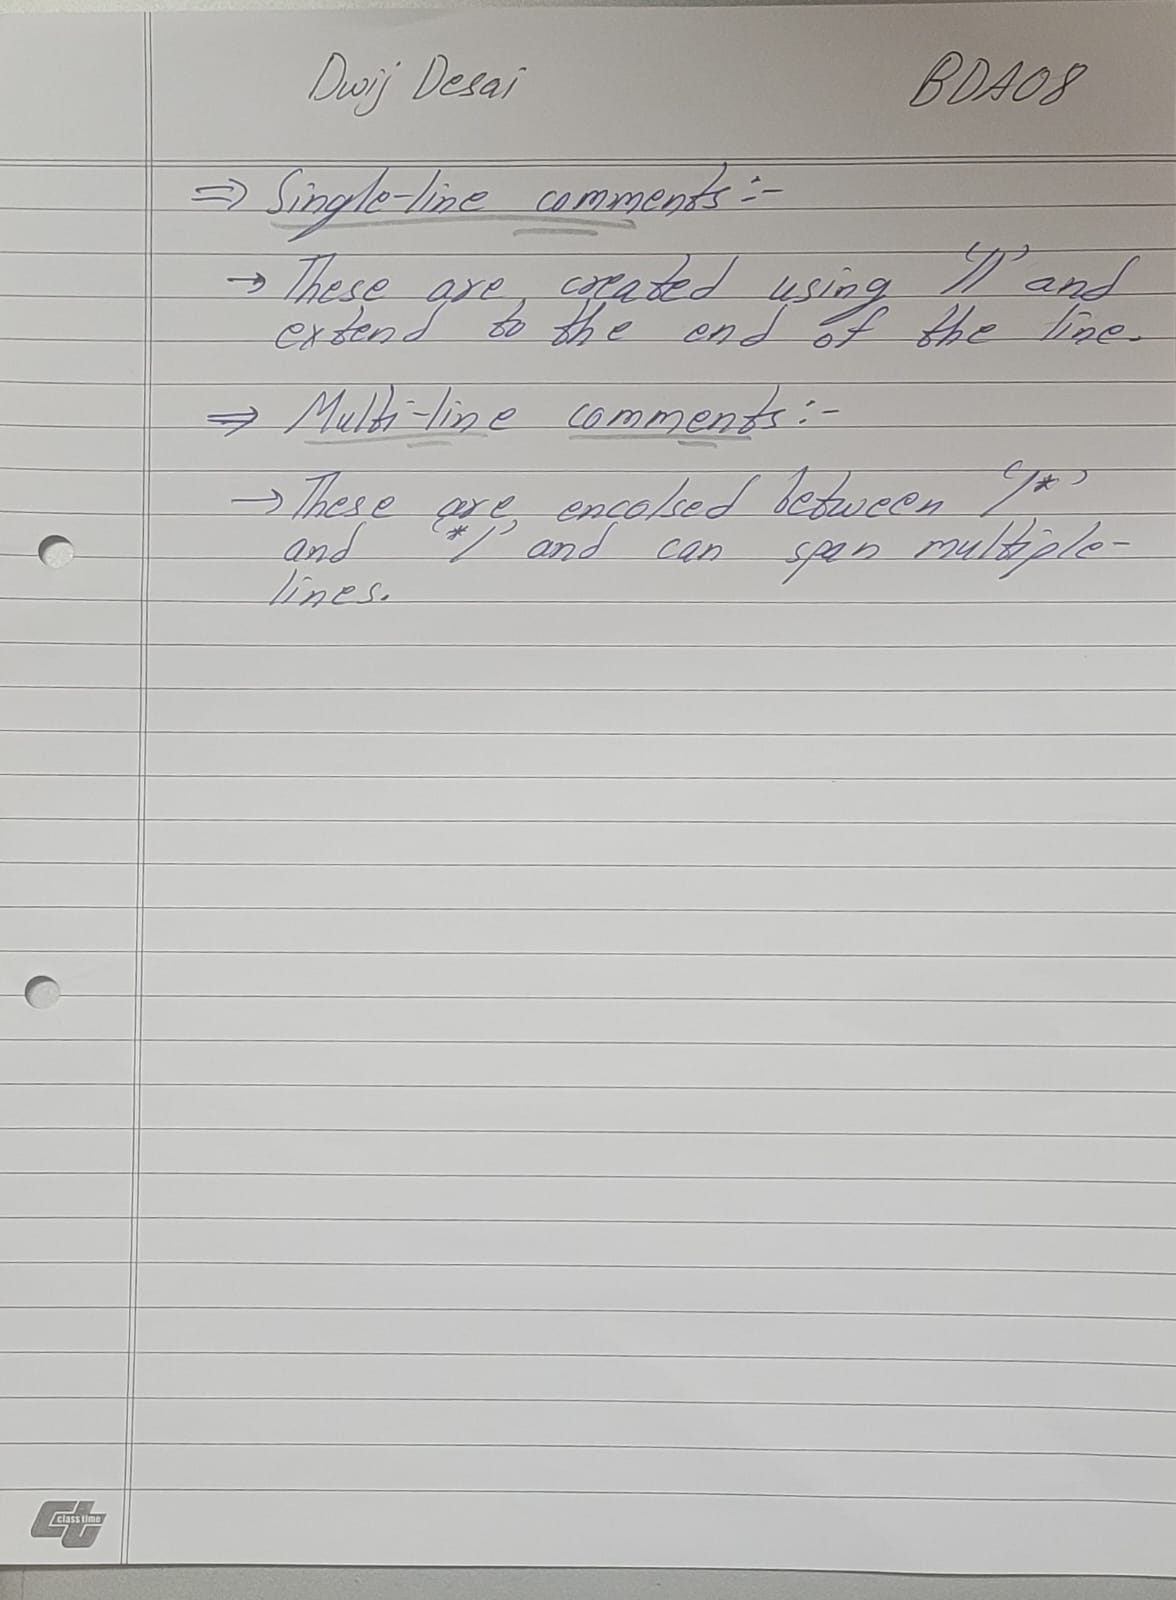 Dwij Desai BDA08
⇒ Single-line comments:-
→ These are created using '//' and
extend to the end of the line.
⇒ Multi-line comments:-
→ These are encolsed between '/*'
and '*/' and can span multiple-
lines.
Ct
classtime